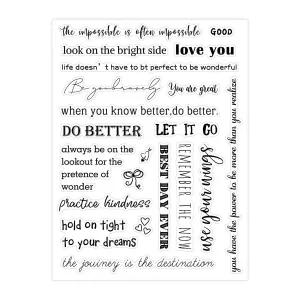 the impossible is often impossible GOOD
look on the bright side love you
life doesn't have to bt perfect to be wonderful
Be you bravely You are great
when you know better,do better.
DO BETTER LET IT GO
always be on the
lookout for the
pretence of
wonder
practice kindness
hold on tight
to your dreams
BEST DAY EVER
REMEMBER THE NOW
use your wings
you have the power to be more than you realize
the journey is the destination